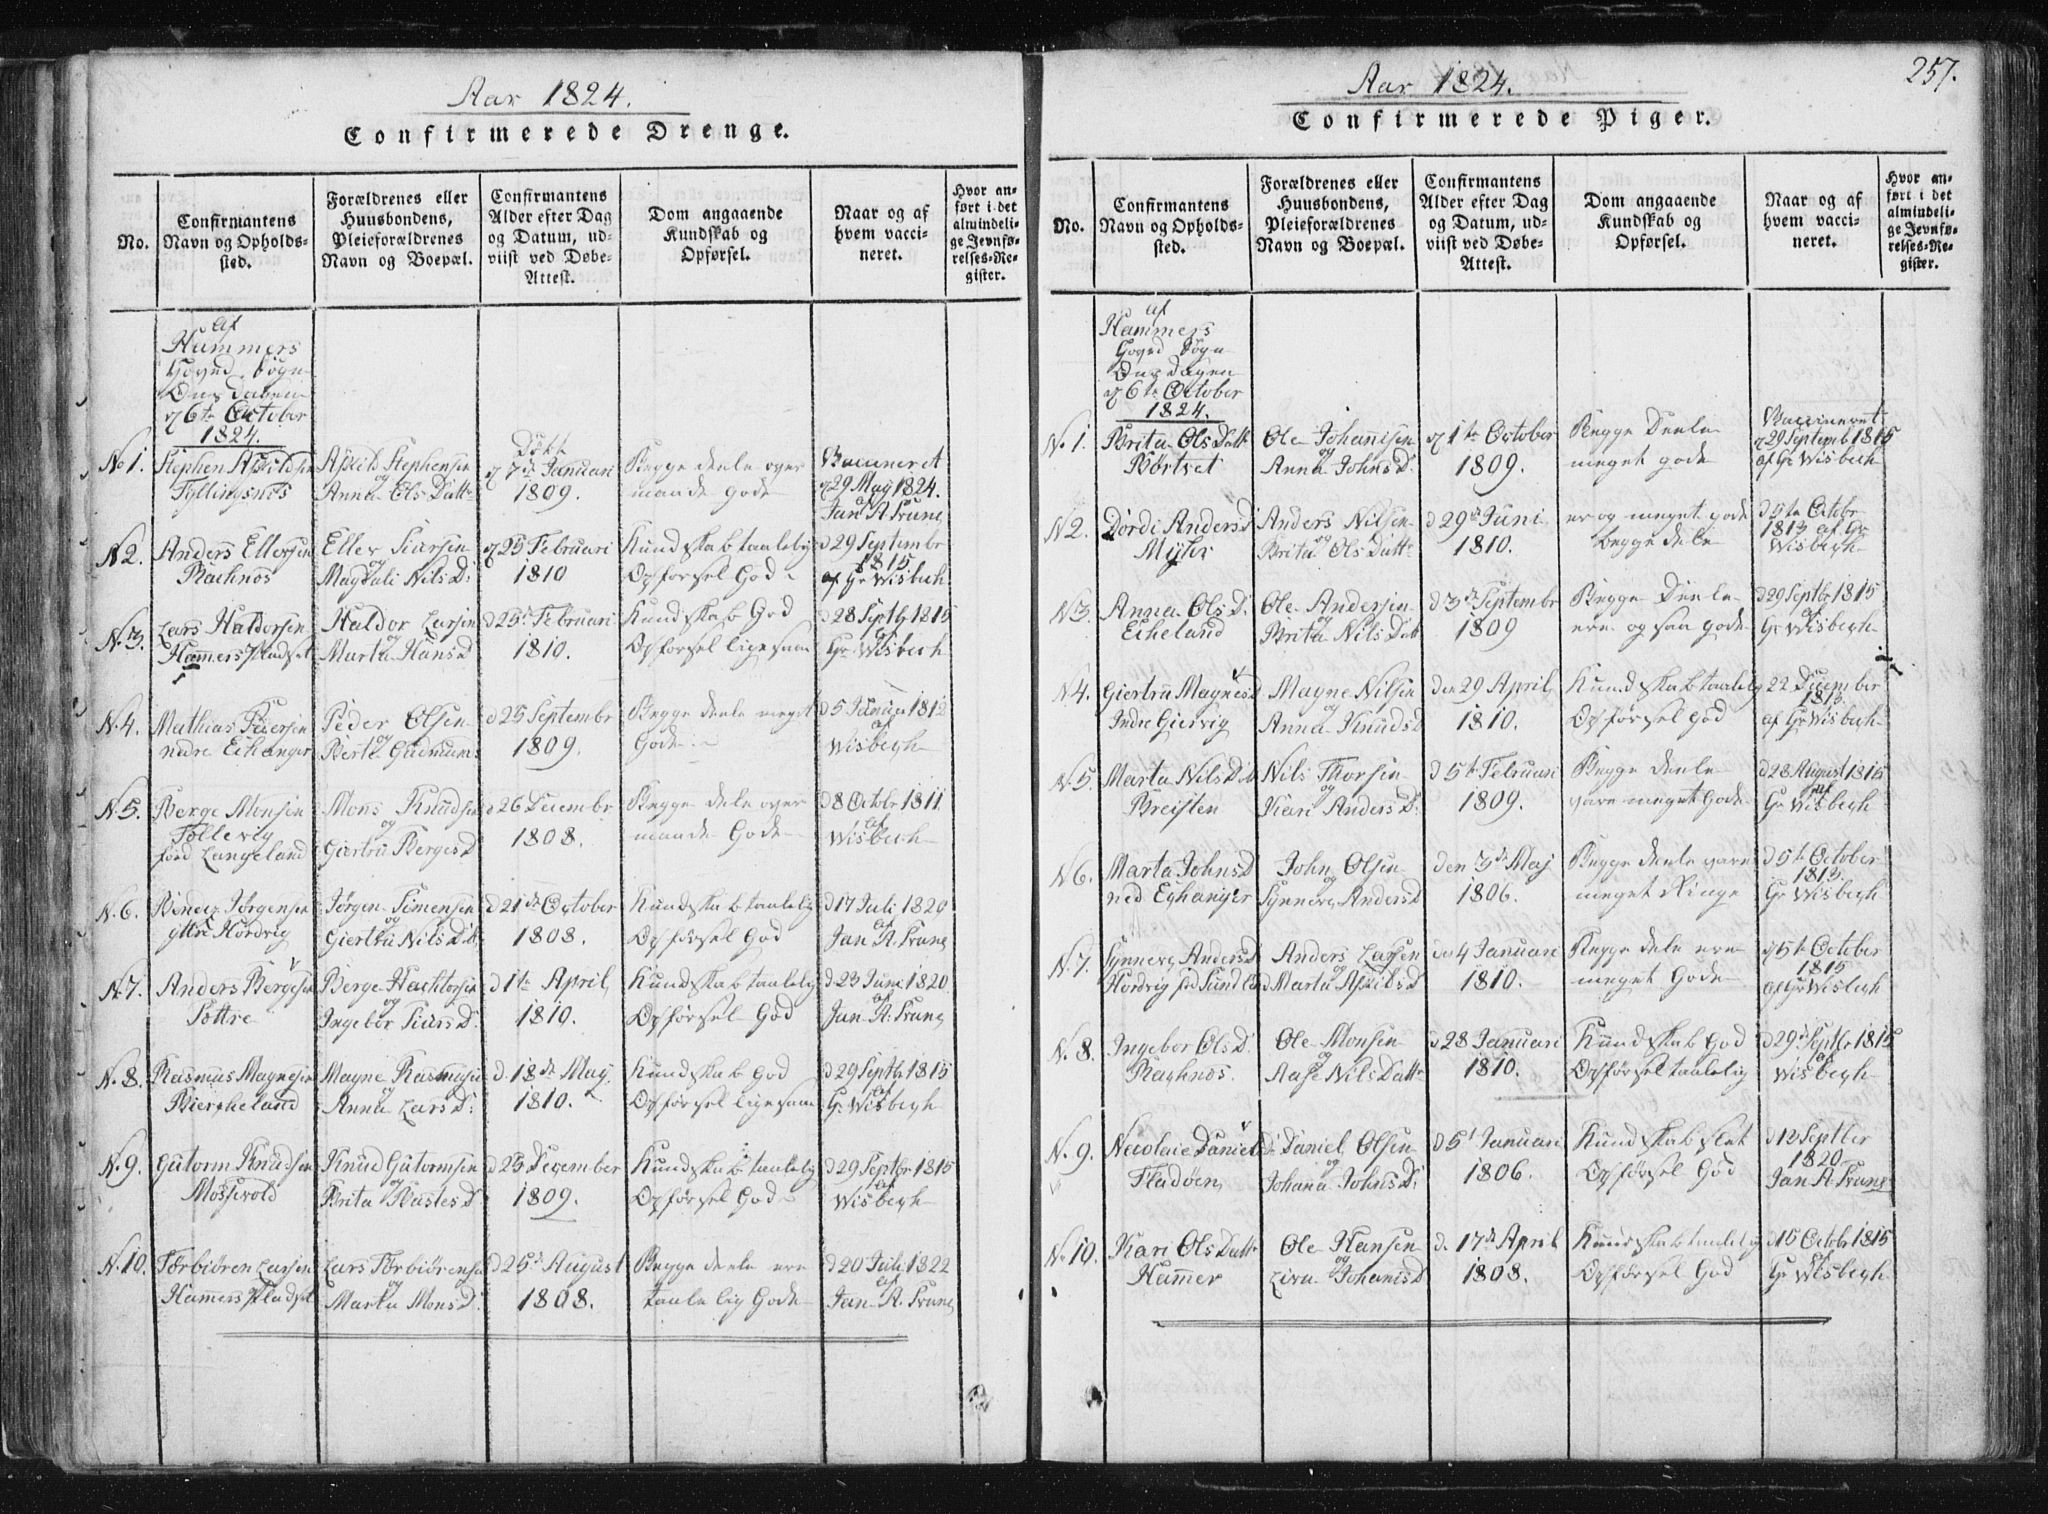 Aar 1824.
Confirmerede Drenge.
No.
Confirmantens
Navn og Opholds-
sted.
Forældrenes eller
Huusbondens,
Pleieforældrenes
Navn og Boepæl.
Confirmantens
Alder efter Dag
og Datum, ud-
viist ved Døbe-
Attest.
Dom angaaende
Kundskab og
Opførsel.
Naar og af
hvem vacci-
neret.
Hvor an-
ført i det
almindeli-
ge Jevnfø-
relses-Re-
gister.
af
Hammers
Hoved Sogn
6te October
1824.
No 1.
Stephen
Anna Ols Datt
7de Januari
1809.
Begge deele over
maade gode
Vaccineret
29 May 1824.
af
Jan A Prune
N 2.
Anders Ellersen
Eller
og
Magdali Nils D:
25 Februari
1810
Kundskab taalelig
Opførsel God
d 29 Septembr
1815
af Gr Wisbech
N. 3.
Lars Haldorsen
Hamers Pladset
Haldor Larsen
og
Marta Hans D
d 25 Februari
1810.
Kundskab God
Opførsel ligesaa
d 28 Septbr 1815
Gr Wisbech
N. 4.
Mathias Pedersen
nedre Eichanger
Peder Olsen
og
d 25 Septembr
1809.
Begge deele meget
Gode
d 5 Januar 1812
af
Wisbech
N. 5.
Berge Monsen
Tollevig
Langeland
Mons Knudsen
og
Giertru Berges D
26 Decembr
1808.
Begge deele over
maade Gode
d 8 Octobr 1811.
af
Wisbech
N. 6.
Jørgensen
yttre Hordvig
Jørgen Simensen
og
Giertru Nils D
d 21de October
1808.
Kundskab taalelig
Opførsel God
d 17 Juli 1820
af
Jan A. Prune
N. 7.
Anders Bergesen
Tottre
Berge
og
Ingebor
d 1te April
1810.
Kundskab taalelig
Opførsel God
d 23 Juni 1820
af
Jan A. Prune
N. 8.
Rasmus Magnesen
Biergheland
Magne Rasmusen
og
Anna Lars D:
d. 18de May
1810.
Kundskab God
Opførsel ligesaa
d 29 Septbr 1815
af
Gr Wisbech
N. 9.
Gutorm Knudsen
Mosevold
Knud Gutormsen
og
Brita
d 23 December
1809.
Kundskab taalelig
Opførsel God
d 29 Septbr 1815
af
Wisbech
N. 10.
Torbiören Larsen
Hamers Pladset
Lars Torbiörensen
og
Marta Mons D:
d 25de August
1808.
Begge deele ere
taalelig Gode
d 20 Juli 1822
af
Jan A. Prune
257.
Aar 1824.
Confirmerede Piger.
No.
Confirmantens
Navn og Opholds-
sted.
Forældrenes eller
Huusbondens,
Pleieforældrenes
Navn og Boepæl.
Confirmantens
Alder efter Dag
og Datum, ud-
viist ved Døbe-
Attest.
Dom angaaende
Kundskab og
Opførsel.
Naar og af
hvem vacci-
neret.
Hvor an-
ført i det
almindeli-
ge Jevnfø-
relses-Re-
gister.
af
Hammers
Hoved Sogn
Onsdagen
6te October
1824.
N. 1.
Brita Ols Datt
Børtvet
Ole Johanisen
og
Anna Johns D:
1te October
1809.
Begge Deele
meget gode
Vaccineret
29 Septemb 1815
af Gr Wisbech
N. 2.
Dordi Anders D
Myhr
Anders Nilsen
og
Brita Ols Datt
d 29de Juni
1810.
er og meget gode
begge deele
d 5te Octobr
1813 af Gr
Wisbech
N. 3.
Anna Ols D:
Eicheland
Ole Andersen
og
Brita Nils Datt
d 3de Septembr
1809
Begge Deele
ere og saa gode
d 29 Septbr 1815
af
Gr Wisbech
N. 4.
Giertru Magnes D
Indre Giervig
Magne Nilsen
og
Anna Knuds D
den 29 April
1810.
Kundskab taalelig
Opførsel God
22 December
1813.
af Gr Wisbech
N. 5.
Marta Nils Datt
Breisten
Nils Thorsen
og
Kari Anders D:
d 5te Februari
1809.
Begge deele
vare meget Gode
d 28 August 1815
af
Gr Wisbech
N 6.
Marta Johns D
ned Eichanger
John Olsen
og
Synneve Anders D
den 3de Maj
1806.
Begge deele vare
meget Ringe
d 5te October
1813.
Gr Wisbech
N. 7.
Synneve Anders D
Anders Larsen
og
Marta
den 4 Januari
1810.
Begge dele ere
meget Gode
5te October
1815
af Gr Wisbech
N. 8.
Ingebor Ols D:
Ole Monsen
og
Aase Nils Datt
d 28 Januari
1810.
Kundskab God
Opførsel taalelig
d 29 Septbr 1815
af
Wisbech
N. 9.
Necolaie Daniels
Fladøen
Daniel Olsen
og
Johana Johns D:
d 5t Januari
1806.
Kundskab slet
Opførsel God
d 12 Septber
1820
Jan A. Prune
No 10.
Kari Ols Datt
Hamer
Ole Hansen
og
Johanes D
d. 17de April
1808.
Kundskab taalelig
Opførsel God
d 15 Octobr 1815
af
Gr Wisbech